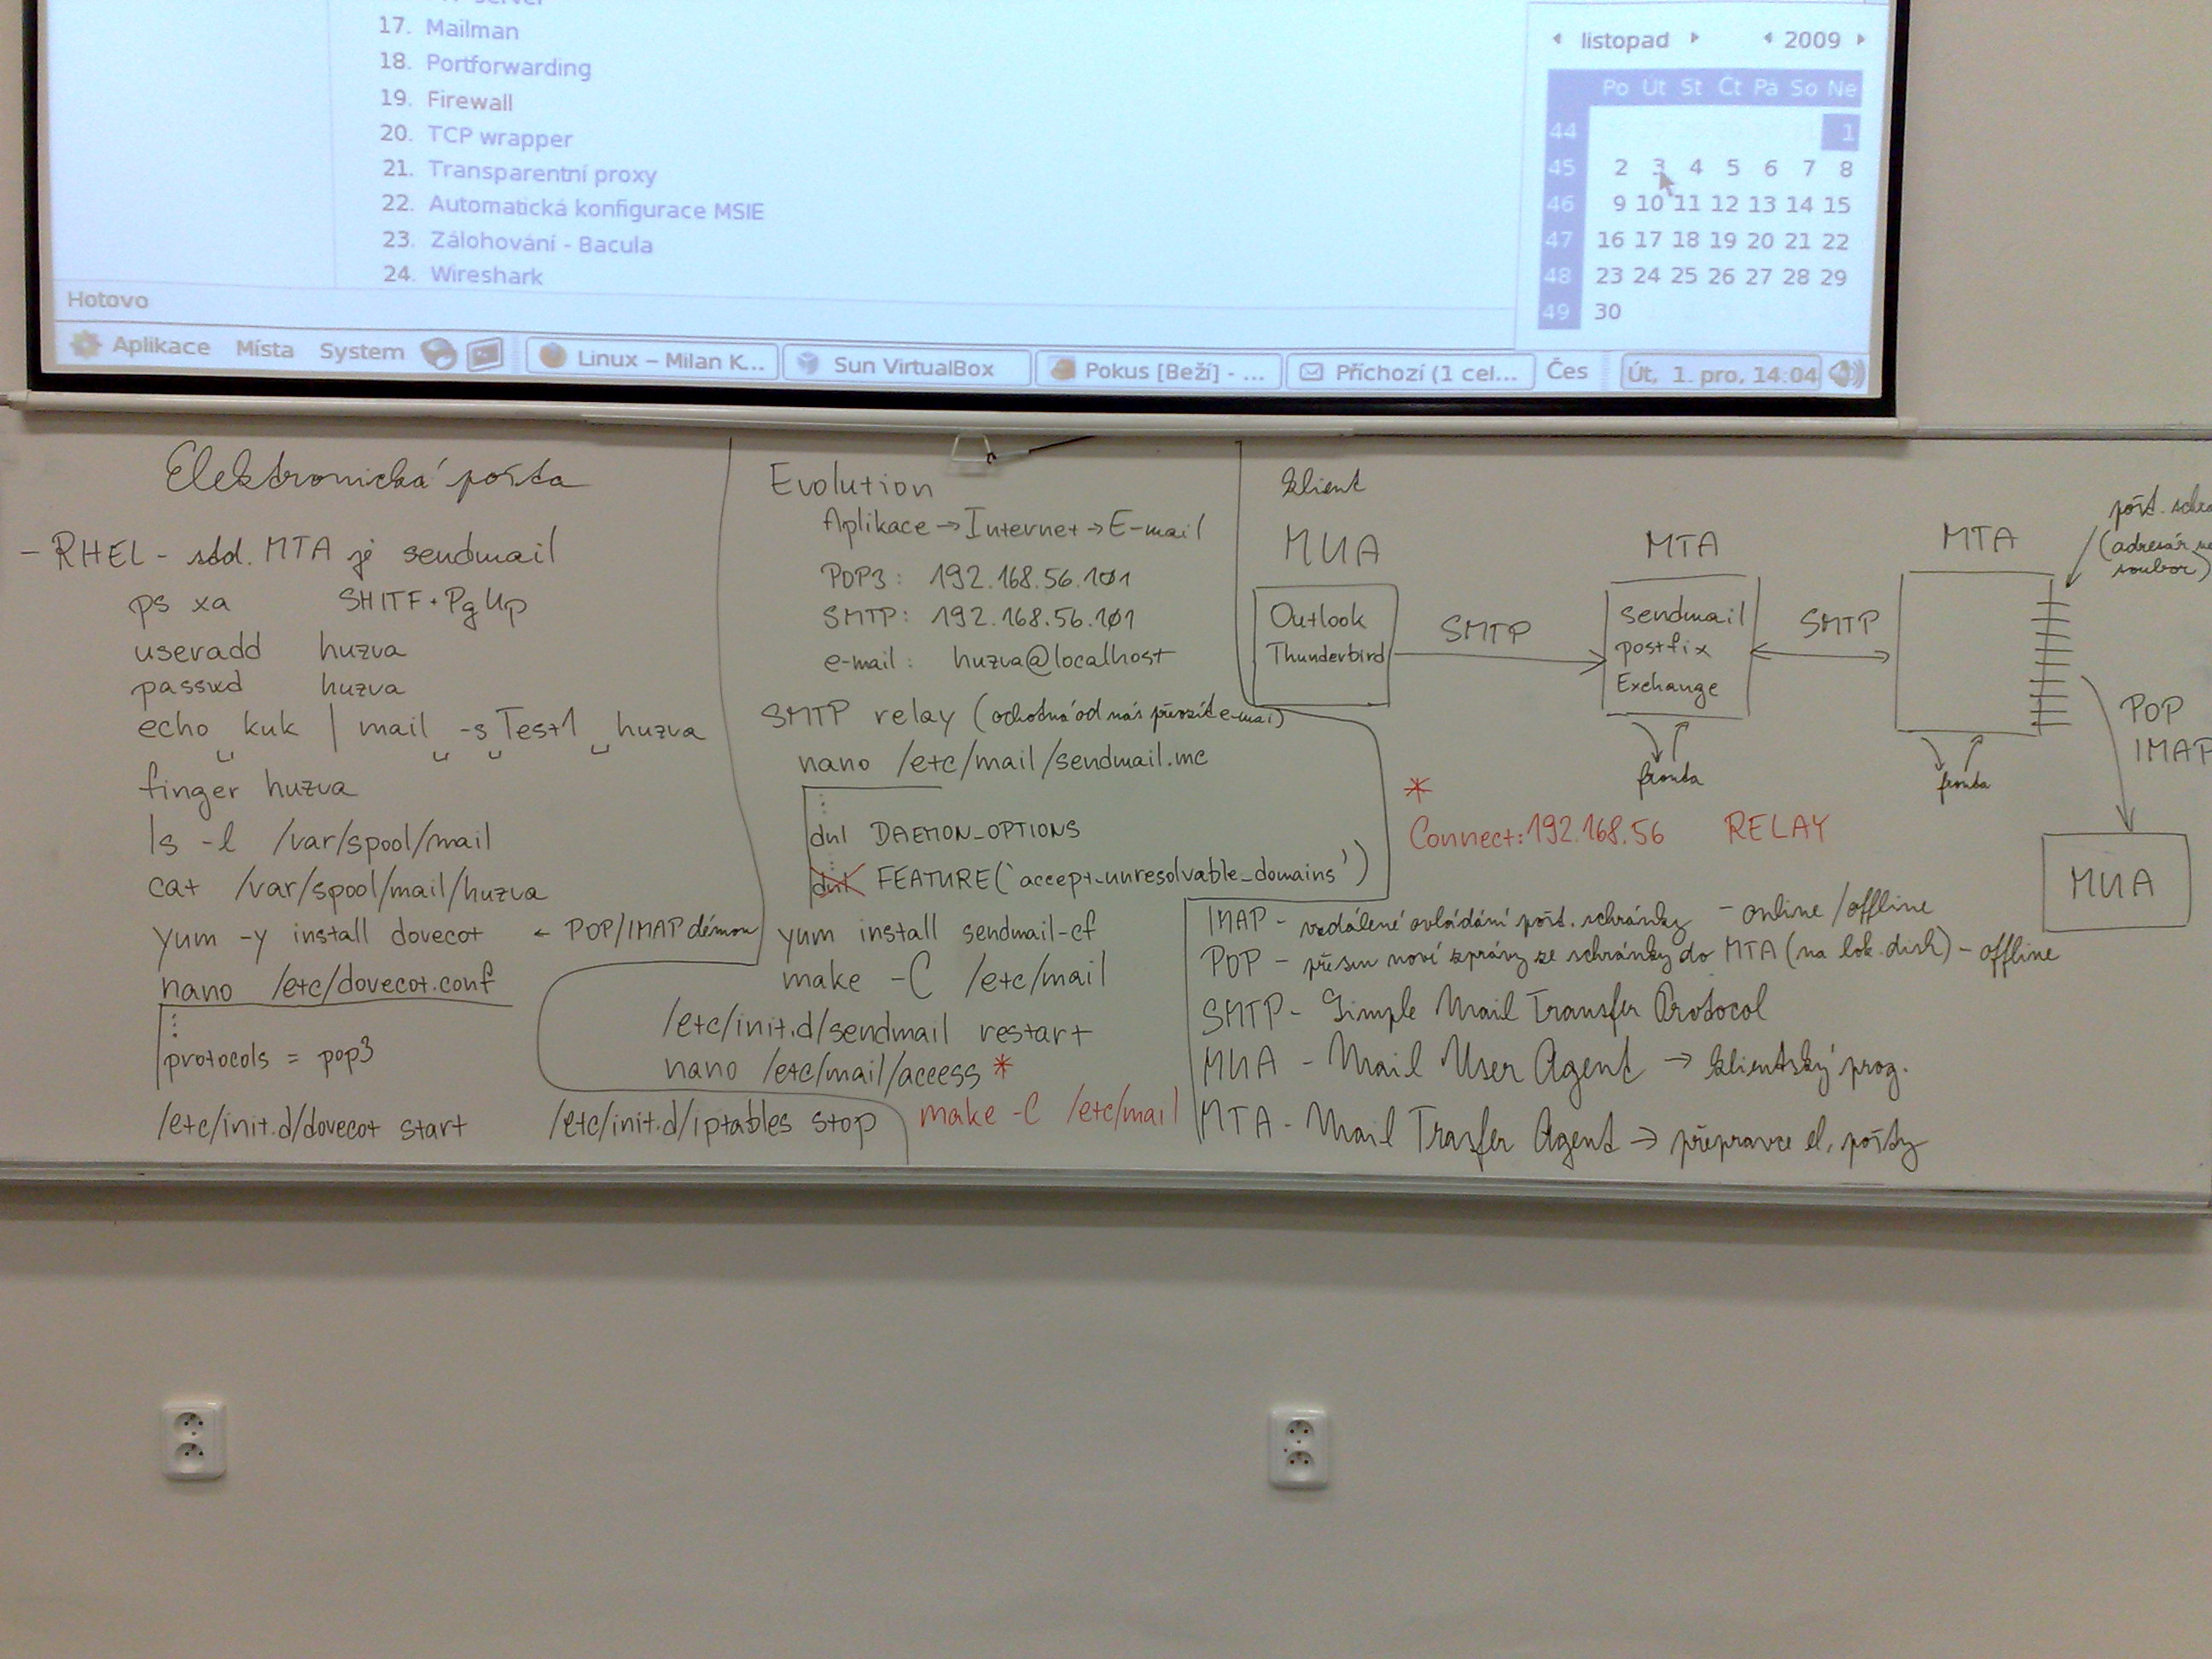 server
17. Mailman
18. Portforwarding
19. Firewall
20. TCP wrapper
21. Transparentní proxy
22. Automatická konfigurace MSIE
23. Zálohování - Bacula
24. Wireshark
Hotovo
listopad 2009
Po Út St Čt Pá So Ne
44 1
45 2 3 4 5 6 7 8
46 9 10 11 12 13 14 15
47 16 17 18 19 20 21 22
48 23 24 25 26 27 28 29
49 30
Aplikace Místa System Linux – Milan K... Sun VirtualBox Pokus [Beží] - ... Příchozí (1 cel... Čes Út, 1. pro, 14:04
Elektronická pošta
- RHEL - std. MTA je sendmail
ps xa SHITF + PgUp
useradd huzva
passwd huzva
echo kuk | mail -s Test1 huzva
finger huzva
ls -l /var/spool/mail
cat /var/spool/mail/huzva
yum -y install dovecot ← POP/IMAP démon
nano /etc/dovecot.conf
⋮
protocols = pop3
/etc/init.d/dovecot start
/etc/init.d/iptables stop
Evolution
Aplikace → Internet → E-mail
POP3: 192.168.56.101
SMTP: 192.168.56.101
e-mail: huzva@localhost
SMTP relay (ochotná od nás převzít e-mail)
nano /etc/mail/sendmail.mc
⋮
dnl DAEMON_OPTIONS
⋮
dnl FEATURE(`accept_unresolvable_domains')
yum install sendmail-cf
make -C /etc/mail
/etc/init.d/sendmail restart
nano /etc/mail/access *
make -C /etc/mail
klient
MUA
Outlook
Thunderbird
SMTP
MTA
sendmail
postfix
Exchange
fronta
SMTP
MTA
fronta
pošt. schrá
(adresář ne
soubor)
POP
IMAP
MUA
*
Connect:192.168.56 RELAY
IMAP - vzdálené ovládání pošt. schránky - online/offline
POP - přesun nové zprávy ze schránky do MTA (na lok. disk) - offline
SMTP - Simple Mail Transfer Protocol
MUA - Mail User Agent → klientský prog.
MTA - Mail Trasfer Agent → přepravce el. pošty